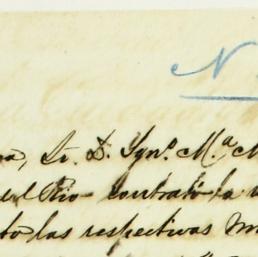 N
Sr. D. Ygnº. Mª. M
del Rio contrató la
to las respectivas